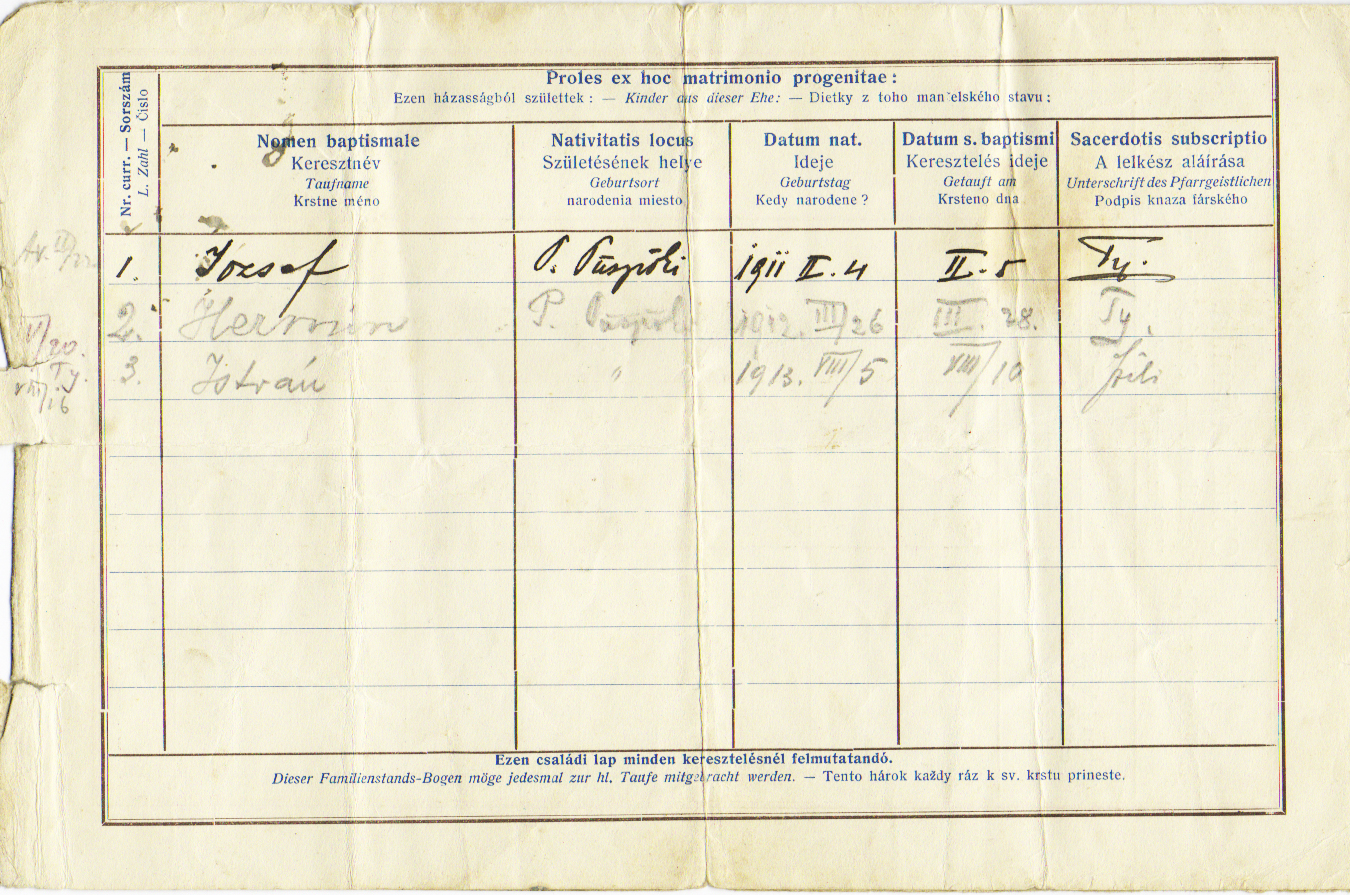 Nr. curr. — Sorszám
L. Zahl — Číslo
Proles ex hoc matrimonio progenitae :
Ezen házasságból születtek : — Kinder aus dieser Ehe: — Dietky z toho man elského stavu :
Nomen baptismale
Keresztnév
Taufname
Krstne méno
Nativitatis locus
Születésének helye
Geburtsort
narodenia miesto
Datum nat.
Ideje
Geburtstag
Kedy narodene ?
Datum s. baptismi
Keresztelés ideje
Getauft am
Krsteno dna
Sacerdotis subscriptio
A lelkész aláírása
Unterschrift des Pfarrgeistlichen
Podpis knaza fárského
1. József P. Püspöki 1911 II. 4 II. 5 Ty.
2. Hermin P. Püspöki 1912. III/26 III. 28. Ty.
V/20. Ty.
3. István " 1913. VIII/5 VIII/10
VIII/16
Ezen családi lap minden keresztelésnél felmutatandó.
Dieser Familienstands-Bogen möge jedesmal zur hl. Taufe mitgebracht werden. — Tento hárok každy ráz k sv. krstu prineste.